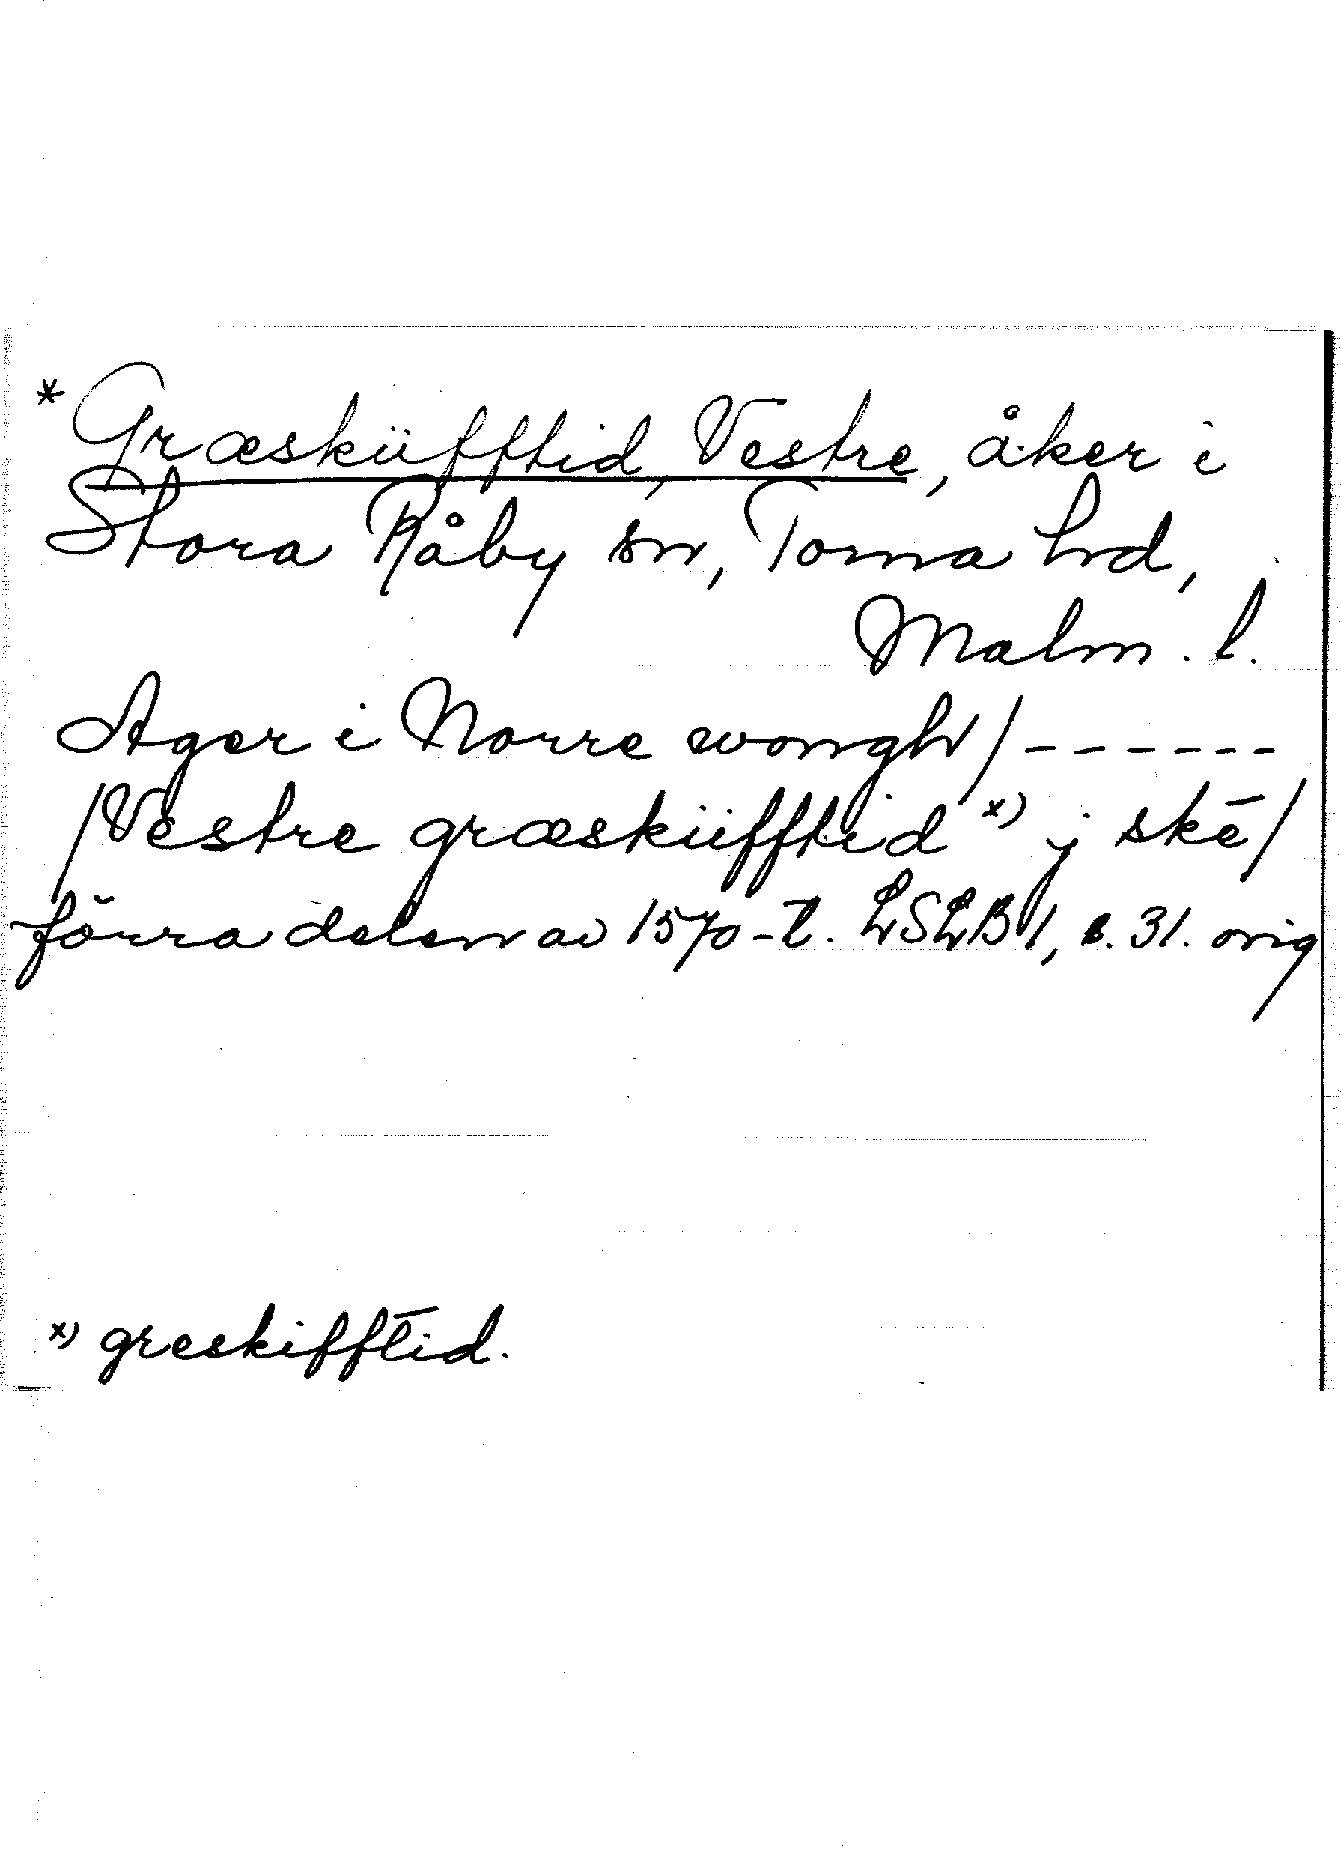 * Græsküfftid, Vestre, åker i
Stora Råby sn, Torna hd,
Malm. l.
Ager i Norre wongh/------
/Vestre græsküfftid x) j skē/
förra delen av 1570-t. LSLB 1, s. 31. orig
x) greskifftid.